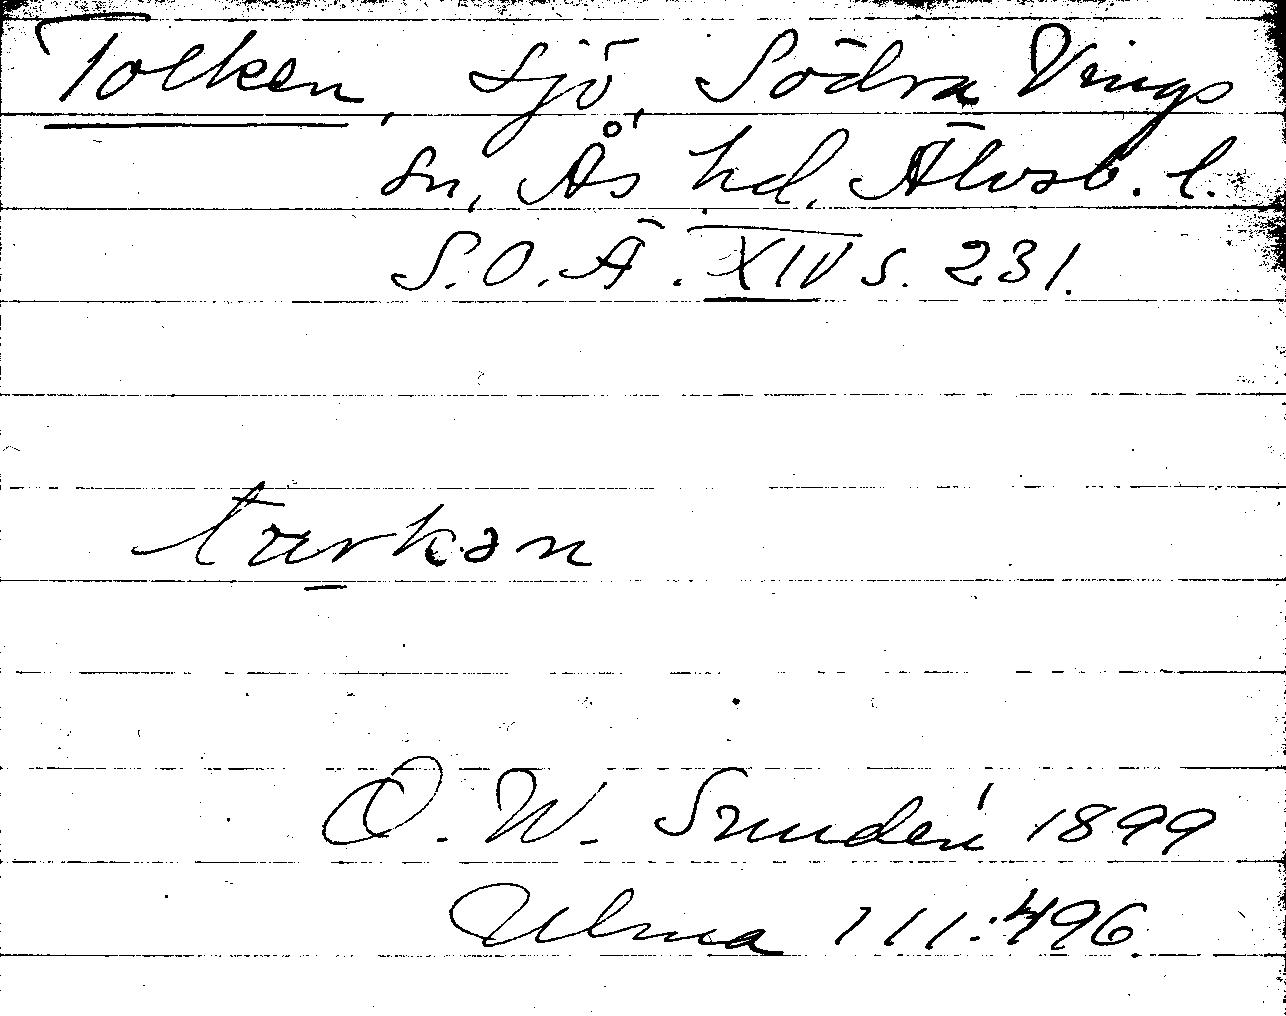 Tolken, sjö, Södra Vings
sn, Ås hd, Älvsb. l.
S.O.Ä. XIV s. 231.
O. W. 1899
Ulma 111:496